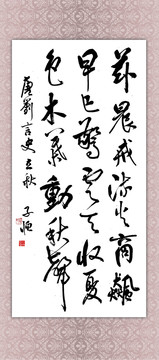 茲晨戒流火商飆
早已驚云天收夏
色木葉動秋聲
唐劉言史立秋 子